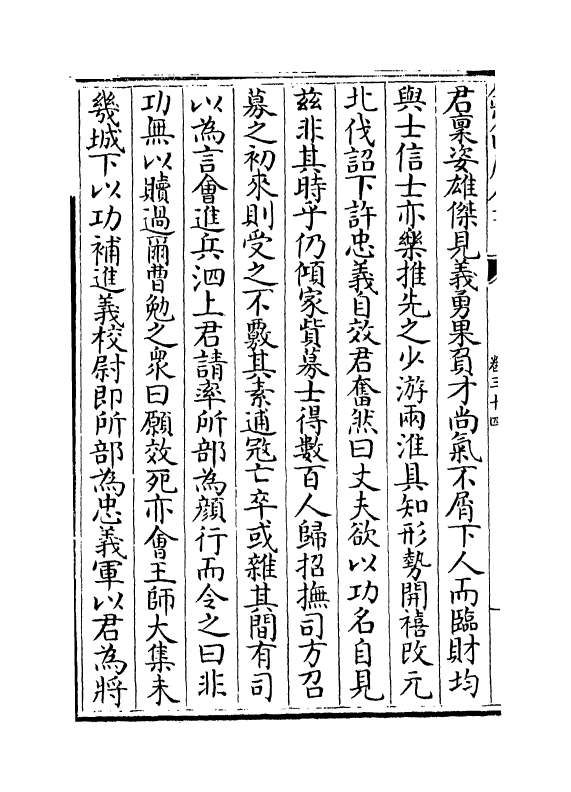 卷三十四
君稟姿雄傑見義勇果負才尚氣不屑下人而臨財均
與士信士亦樂推先之少游兩淮具知形勢開禧改元
北伐詔下許忠義自效君奮然曰丈夫欲以功名自見
兹非其時乎仍傾家貲募士得數百人歸招撫司方召
募之初來則受之不覈其素逋冦亡卒或雜其間有司
以為言會進兵泗上君請率所部為顔行而令之曰非
功無以贖過爾曹勉之衆曰願效死亦會王師大集未
幾城下以功補進義校尉即所部為忠義軍以君為將